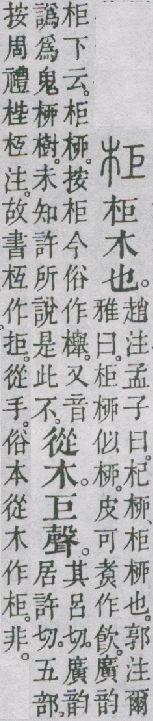 柜 柜木也。
趙注孟子曰。杞桺、柜桺也。郭注爾
雅曰。柜桺似桺。皮可煮作飲。廣韵
柜下云。柜桺。按柜今俗作櫸。又音
譌爲鬼桺樹。未知許所說是此不。
從木。巨聲。
其呂切。廣韵
居許切。五部。
按周禮梐枑注。故書枑作拒。從手。俗本從木作柜。非。